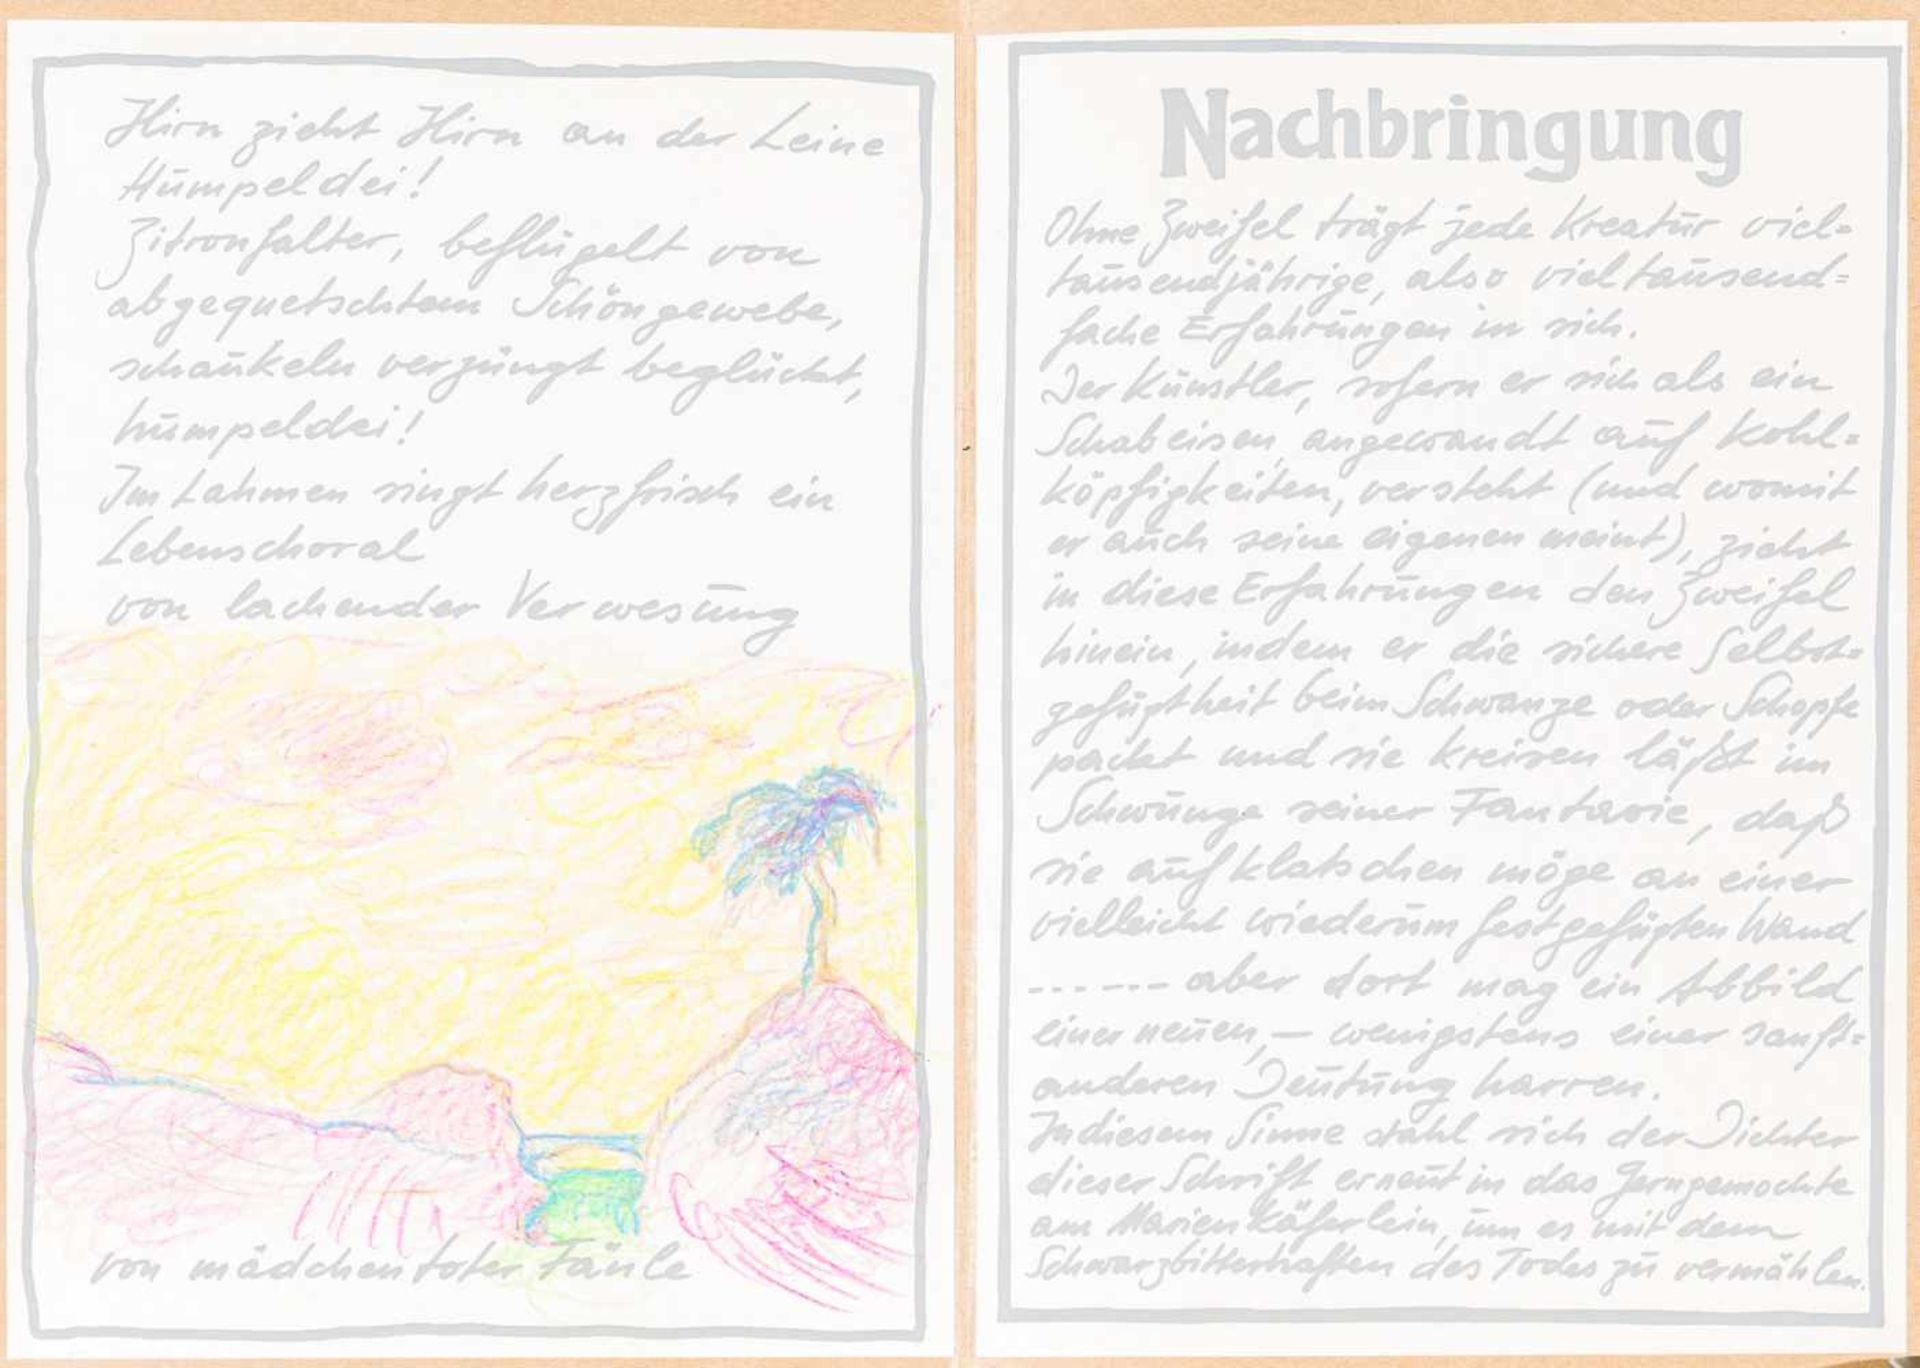 Hirn zieht Hirn an der Leine
Humpeldei!
Zitronfalter, beflügelt von
abgequetschtem Schöngewebe,
schaukeln verjüngt beglückt,
humpeldei!
Im Lahmen singt herzfrisch ein
Lebenschoral
von lachender Verwesung
von mädchentoter Fäule
Nachbringung
Ohne Zweifel trägt jede Kreatur viel=
tausendjährige, also vieltausend=
fache Erfahrungen in sich.
Der Künstler, sofern er sich als ein
Schabeisen, angewandt auf Kohl=
köpfigkeiten, versteht (und womit
er auch seine eigenen meint), zieht
in diese Erfahrungen den Zweifel
hinein, indem er die sichere Selbst=
gefügtheit beim Schwanze oder Schopfe
packt und sie kreisen läßt im
Schwunge seiner Fantasie, daß
sie aufklatschen möge an einer
vielleicht wiederum festgefügten Wand
------ aber dort mag ein Abbild
einer neuen, – wenigstens einer sanft=
anderen Deutung harren.
In diesem Sinne stahl sich der Dichter
dieser Schrift erneut in das Gerngemochte
am Marienkäferlein, um es mit dem
Schwarzbitterhaften des Todes zu vermählen.